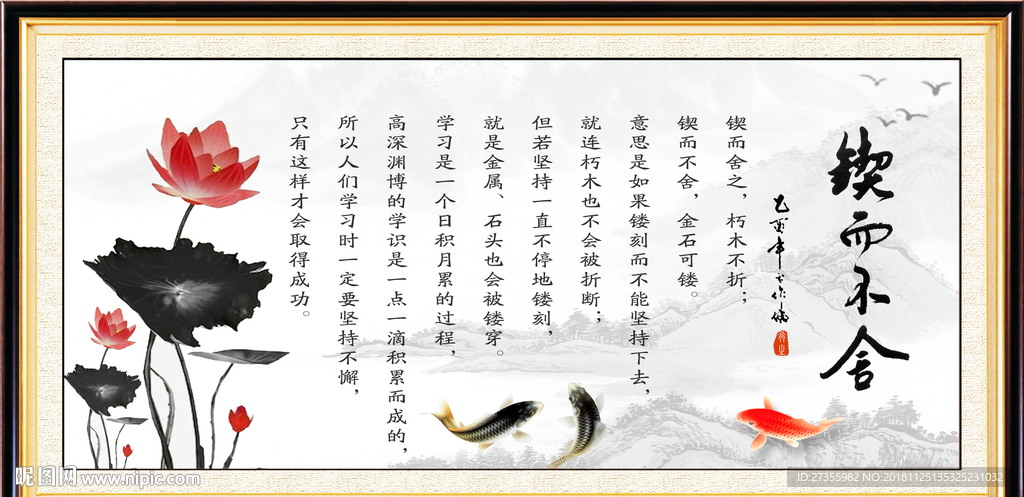 锲而不舍
锲而舍之，朽木不折；
锲而不舍，金石可镂。
意思是如果镂刻而不能坚持下去，
就连朽木也不会被折断；
但若坚持一直不停地镂刻，
就是金属、石头也会被镂穿。
学习是一个日积月累的过程，
高深渊博的学识是一点一滴积累而成的，
所以人们学习时一定要坚持不懈，
只有这样才会取得成功。
昵图网 www.nipic.com
ID:27355982 NO:20181125135325231032